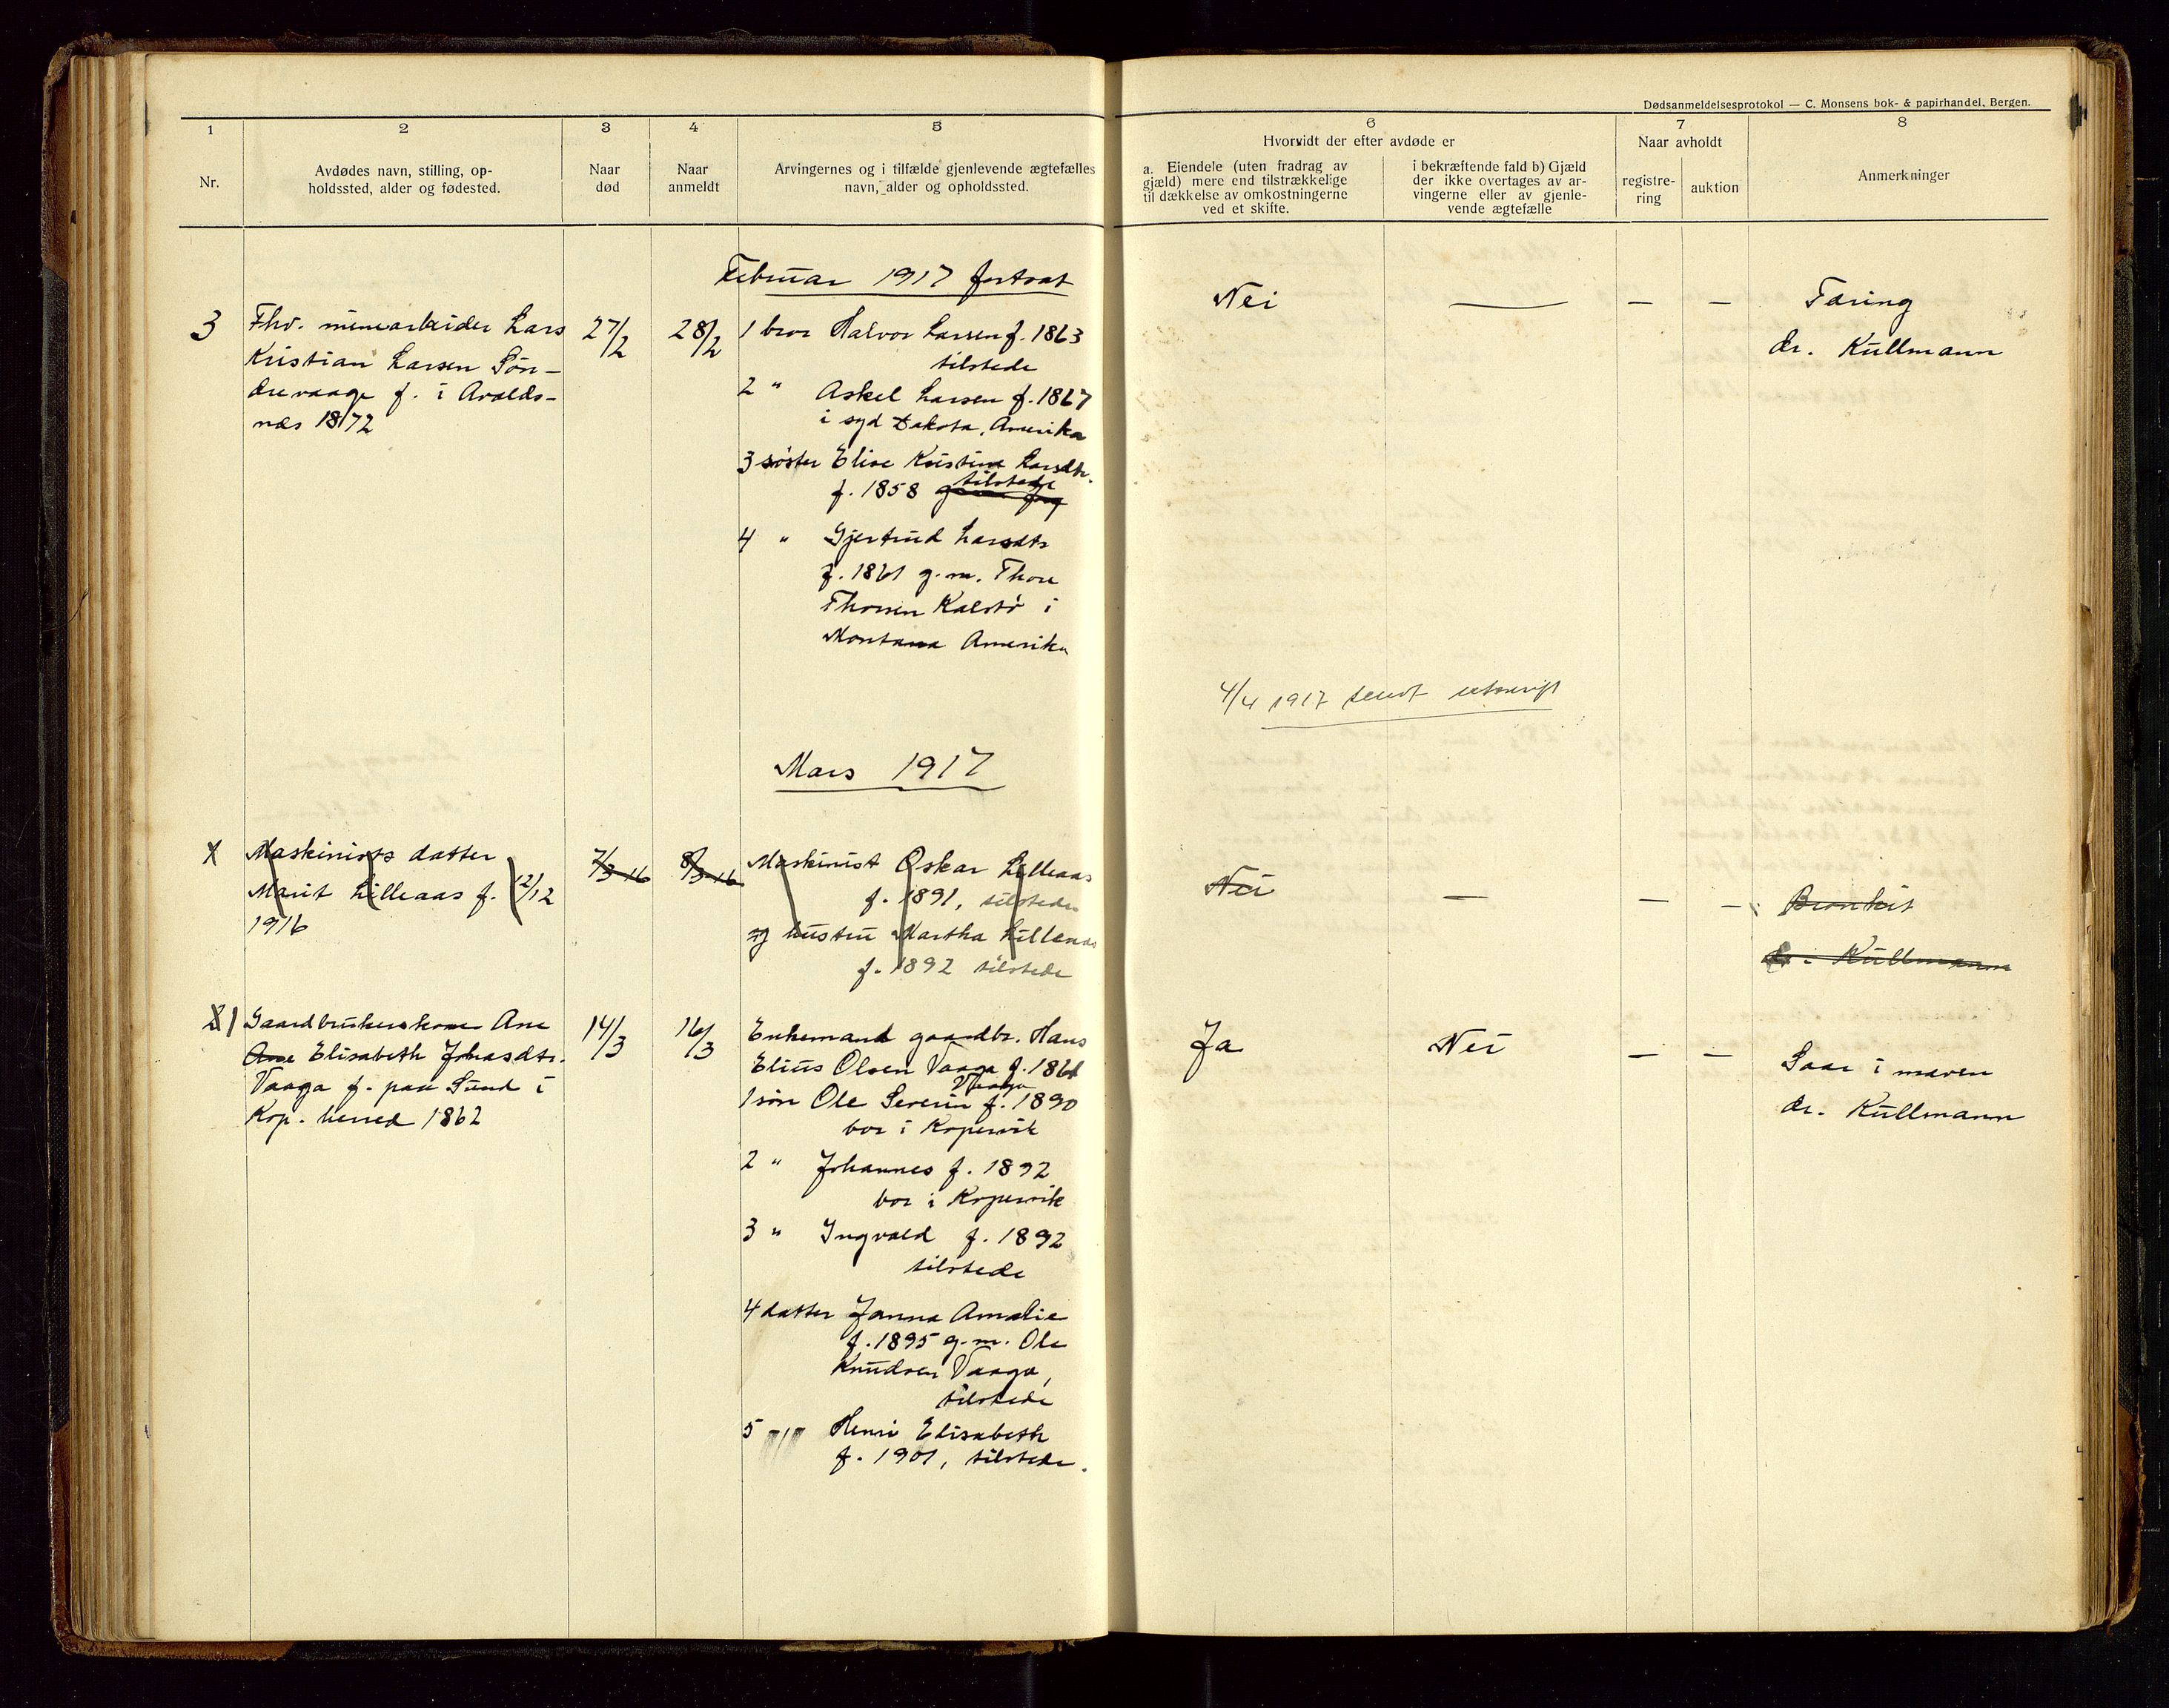 Dødsanmeldelsesprotokol — C. Monsens bok- & papirhandel, Bergen.
1 2 3 4 5 6 7 8
Nr.
Avdødes navn, stilling, op-
holdssted, alder og fødested.
Naar
død
Naar
anmeldt
Arvingernes og i tilfælde gjenlevende ægtefælles
navn, alder og opholdssted.
Hvorvidt der efter avdøde er
a. Eiendele (uten fradrag av
gjæld) mere end tilstrækkelige
til dækkelse av omkostningerne
ved et skifte.
i bekræftende fald b) Gjæld
der ikke overtages av ar-
vingerne eller av gjenle-
vende ægtefælle
Naar avholdt
registre-
ring
auktion
Anmerkninger
Februar 1917 fortsat
3
Fhv. minearbeider Lars
Kristian Larsen Søn-
drevaage f. i Avalds-
nes 1872
27/2
28/2
1 bror Halvor Larsen f. 1863
tilstede
2 " Askel Larsen f. 1867
i syd Dakota, Amerika
3 søster Elise Kristine Larsdtr.
f. 1858 tilstede
4 " Gjertrud Larsdtr
f. 1861 g.m. Thore
Thorsen Kalstø i
Montana Amerika
Nei — — —
Tæring
dr. Kullmann
4/4 1917 sendt utskrift
Mars 1917
1
Maskinists datter
Marit Lilleaas f. 12/12
1916
7/3 16
8/3 16
Maskinist Oskar Lilleaas
f. 1891, tilstede
og hustru Martha Lilleaas
f. 1892 tilstede
Nei — — —
Bronkit
dr. Kullmann
2 1
Gaardbrukerskone Ane
Ane Elisabeth Johasdtr.
Vaaga f. paa Sund i
Kop. herred 1862
14/3
16/3
Enkemand gaardbr. Hans
Elius Olsen Vaaga f. 1861
1 søn Ole Severin Vaaga f. 1890
bor i Kopervik
2 " Johannes f. 1892
bor i Kopervik
3 " Ingvald f. 1892
tilstede
4 datter Janna Amalie
f. 1895 g.m. Ole
Knudsen Vaaga,
tilstede
5 " Henri Elisabeth
f. 1901, tilstede.
Ja Nei — —
Saar i maven
dr. Kullmann